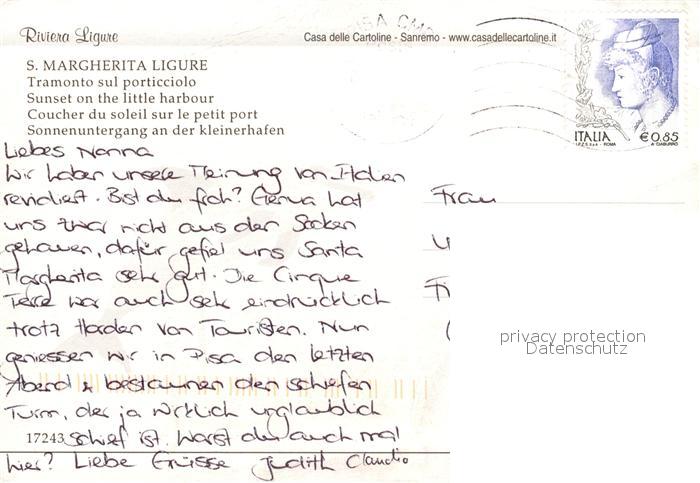 Riviera Ligure
Casa delle Cartoline - Sanremo - www.casadellecartoline.it
S. MARGHERITA LIGURE
Tramonto sul porticciolo
Sunset on the little harbour
Coucher du soleil sur le petit port
Sonnenuntergang an der kleinerhafen
ITALIA €0,85
I.P.Z.S. S.p.A. - ROMA
Liebes Nonna
Wir haben unsere Meinung von Italien
revidiert. Bist du froh? Genua hat
uns zwar nicht aus den Socken
gehauen, dafür gefiel uns Santa
Margherita sehr gut. Die Cinque
Terre war auch sehr eindrücklich
trotz Horden von Touristen. Nun
geniessen wir in Pisa den letzten
Abend & bestaunen den schiefen
Turm, der ja wirklich unglaublich
17243 schief ist. Warst du auch mal
hier? Liebe Grüsse Judith Claudio
Frau
privacy protection
Datenschutz